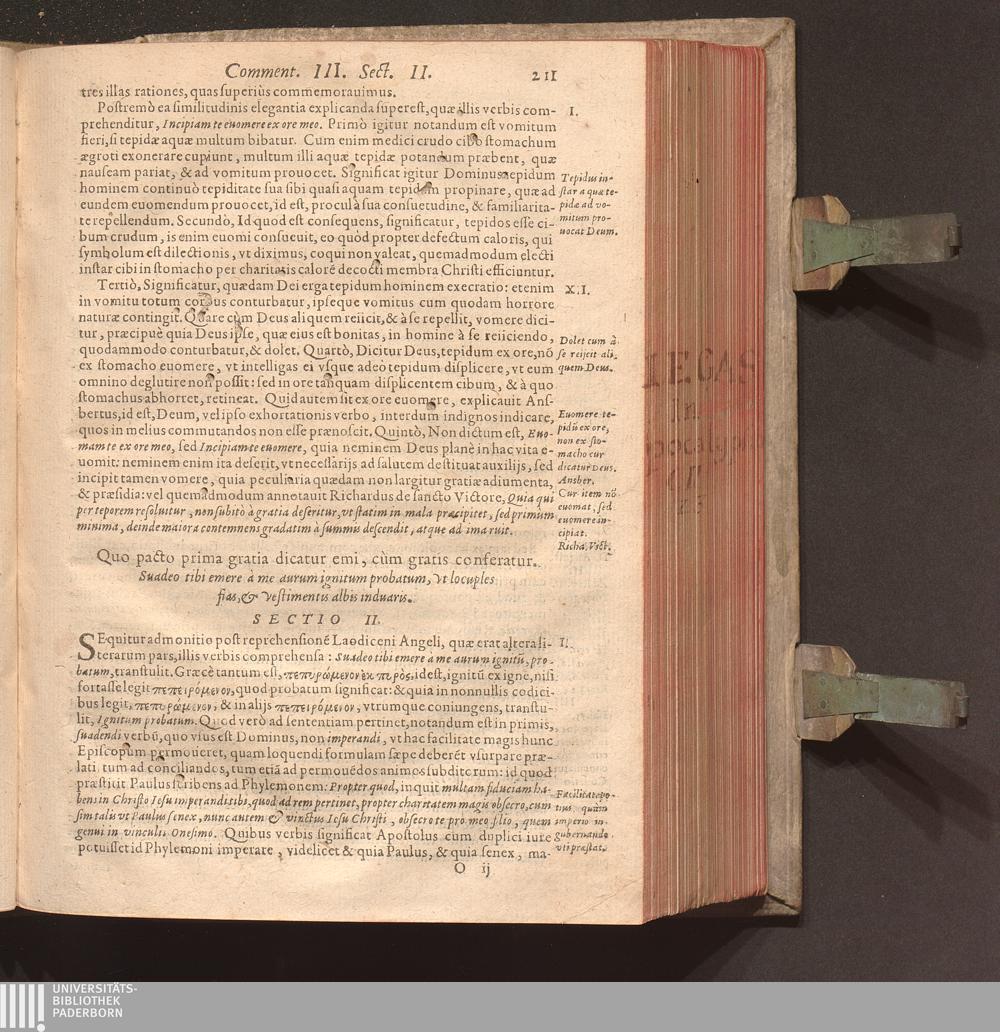 Comment. III. Sect. II. 211
tres illas rationes, quas superiùs commemorauimus.
Postremò ea similitudinis elegantia explicanda superest, quæ illis verbis com-
prehenditur, Incipiam te euomere ex ore meo. Primò igitur notandum est vomitum
fieri, si tepidæ aquæ multum bibatur. Cum enim medici crudo cibo stomachum
ægroti exonerare cupiunt, multum illi aquæ tepidæ potandum præbent, quæ
nauseam pariat, & ad vomitum prouocet. Significat igitur Dominus tepidum
hominem continuò tepiditate sua sibi quasi aquam tepidam propinare, quæ ad
eundem euomendum prouocet, id est, procul à sua consuetudine, & familiarita-
te repellendum. Secundò, Id quod est consequens, significatur, tepidos esse ci-
bum crudum, is enim euomi consueuit, eo quòd propter defectum caloris, qui
symbolum est dilectionis, vt diximus, coqui non valeat, quemadmodum electi
instar cibi in stomacho per charitatis calorē decocti membra Christi efficiuntur.
Tertiò, Significatur, quædam Dei erga tepidum hominem execratio: etenim
in vomitu totum corpus conturbatur, ipseque vomitus cum quodam horrore
naturæ contingit. Quare cùm Deus aliquem reiicit, & à se repellit, vomere dici-
tur, præcipuè quia Deus ipse, quæ eius est bonitas, in homine à se reiiciendo,
quodammodo conturbatur, & dolet. Quartò, Dicitur Deus, tepidum ex ore, nō
ex stomacho euomere, vt intelligas ei vsque adeo tepidum displicere, vt eum
omnino deglutire non possit: sed in ore tanquam displicentem cibum, & à quo
stomachus abhorret, retineat. Quid autem sit ex ore euomere, explicauit Ans-
bertus, id est, Deum, vel ipso exhortationis verbo, interdum indignos indicare,
quos in melius commutandos non esse prænoscit. Quintò, Non dictum est, Euo-
mam te ex ore meo, sed Incipiam te euomere, quia neminem Deus planè in hac vita e-
uomit: neminem enim ita deserit, vt necessarijs ad salutem destituat auxilijs, sed
incipit tamen vomere, quia peculiaria quædam non largitur gratiæ adiumenta,
& præsidia: vel quemadmodum annotauit Richardus de sancto Victore, Quia qui
per teporem resoluitur, non subitò à gratia deseritur, vt statim in mala præcipitet, sed primùm
minima, deinde maiora contemnens gradatim à summis descendit, atque ad ima ruit.
I.
Tepidus in-
star aquæ te-
pidæ ad vo-
mitum pro-
uocat Deum.
X.I.
Dolet cum à
se reijcit ali-
quem Deus.
Euomere te-
pidū ex ore,
non ex sto-
macho cur
dicatur Deus.
Ansber.
Cur item nō
euomat, sed
euomere in-
cipiat.
Richa. Vict.
Quo pacto prima gratia dicatur emi, cùm gratis conferatur.
Suadeo tibi emere à me aurum ignitum probatum, vt locuples
fias, & vestimentis albis induaris.
SECTIO II.
SEquitur admonitio post reprehensionē Laodiceni Angeli, quæ erat altera li-
terarum pars, illis verbis comprehensa: Suadeo tibi emere à me aurum ignitū, pro-
batum, transtulit. Græcè tantum est, πεπυρωμένον ἐκ πυρὸς, id est, ignitū ex igne, nisi
fortasse legit πεπειρόμενον, quod probatum significat: & quia in nonnullis codici-
bus legit, πεπυρωμένον, & in alijs πεπειρόμενον, vtrumque coniungens, transtu-
lit, Ignitum probatum. Quod verò ad sententiam pertinet, notandum est in primis,
suadendi verbū, quo vsus est Dominus, non imperandi, vt hac facilitate magis hunc
Episcopum permoueret, quam loquendi formulam sæpe deberēt vsurpare præ-
lati tum ad conciliandos, tum etiā ad permouēdos animos subditorum: id quod
præstitit Paulus scribens ad Phylemonem: Propter quod, inquit multam fiduciam ha-
bens in Christo Iesu imperandi tibi, quod ad rem pertinet, propter charitatem magis obsecro, cum
sim talis vt Paulus senex, nunc autem & vinctus Iesu Christi, obsecro te pro meo filio, quem
genui in vinculis Onesimo. Quibus verbis significat Apostolus cum duplici iure
potuisset id Phylemoni imperare, videlicet & quia Paulus, & quia senex, ma-
I.
Facilitate po-
tius, quàm
imperio in
gubernando
vti præstat.
O ij
LEGAS
In
UNIVERSITÄTS-
BIBLIOTHEK
PADERBORN